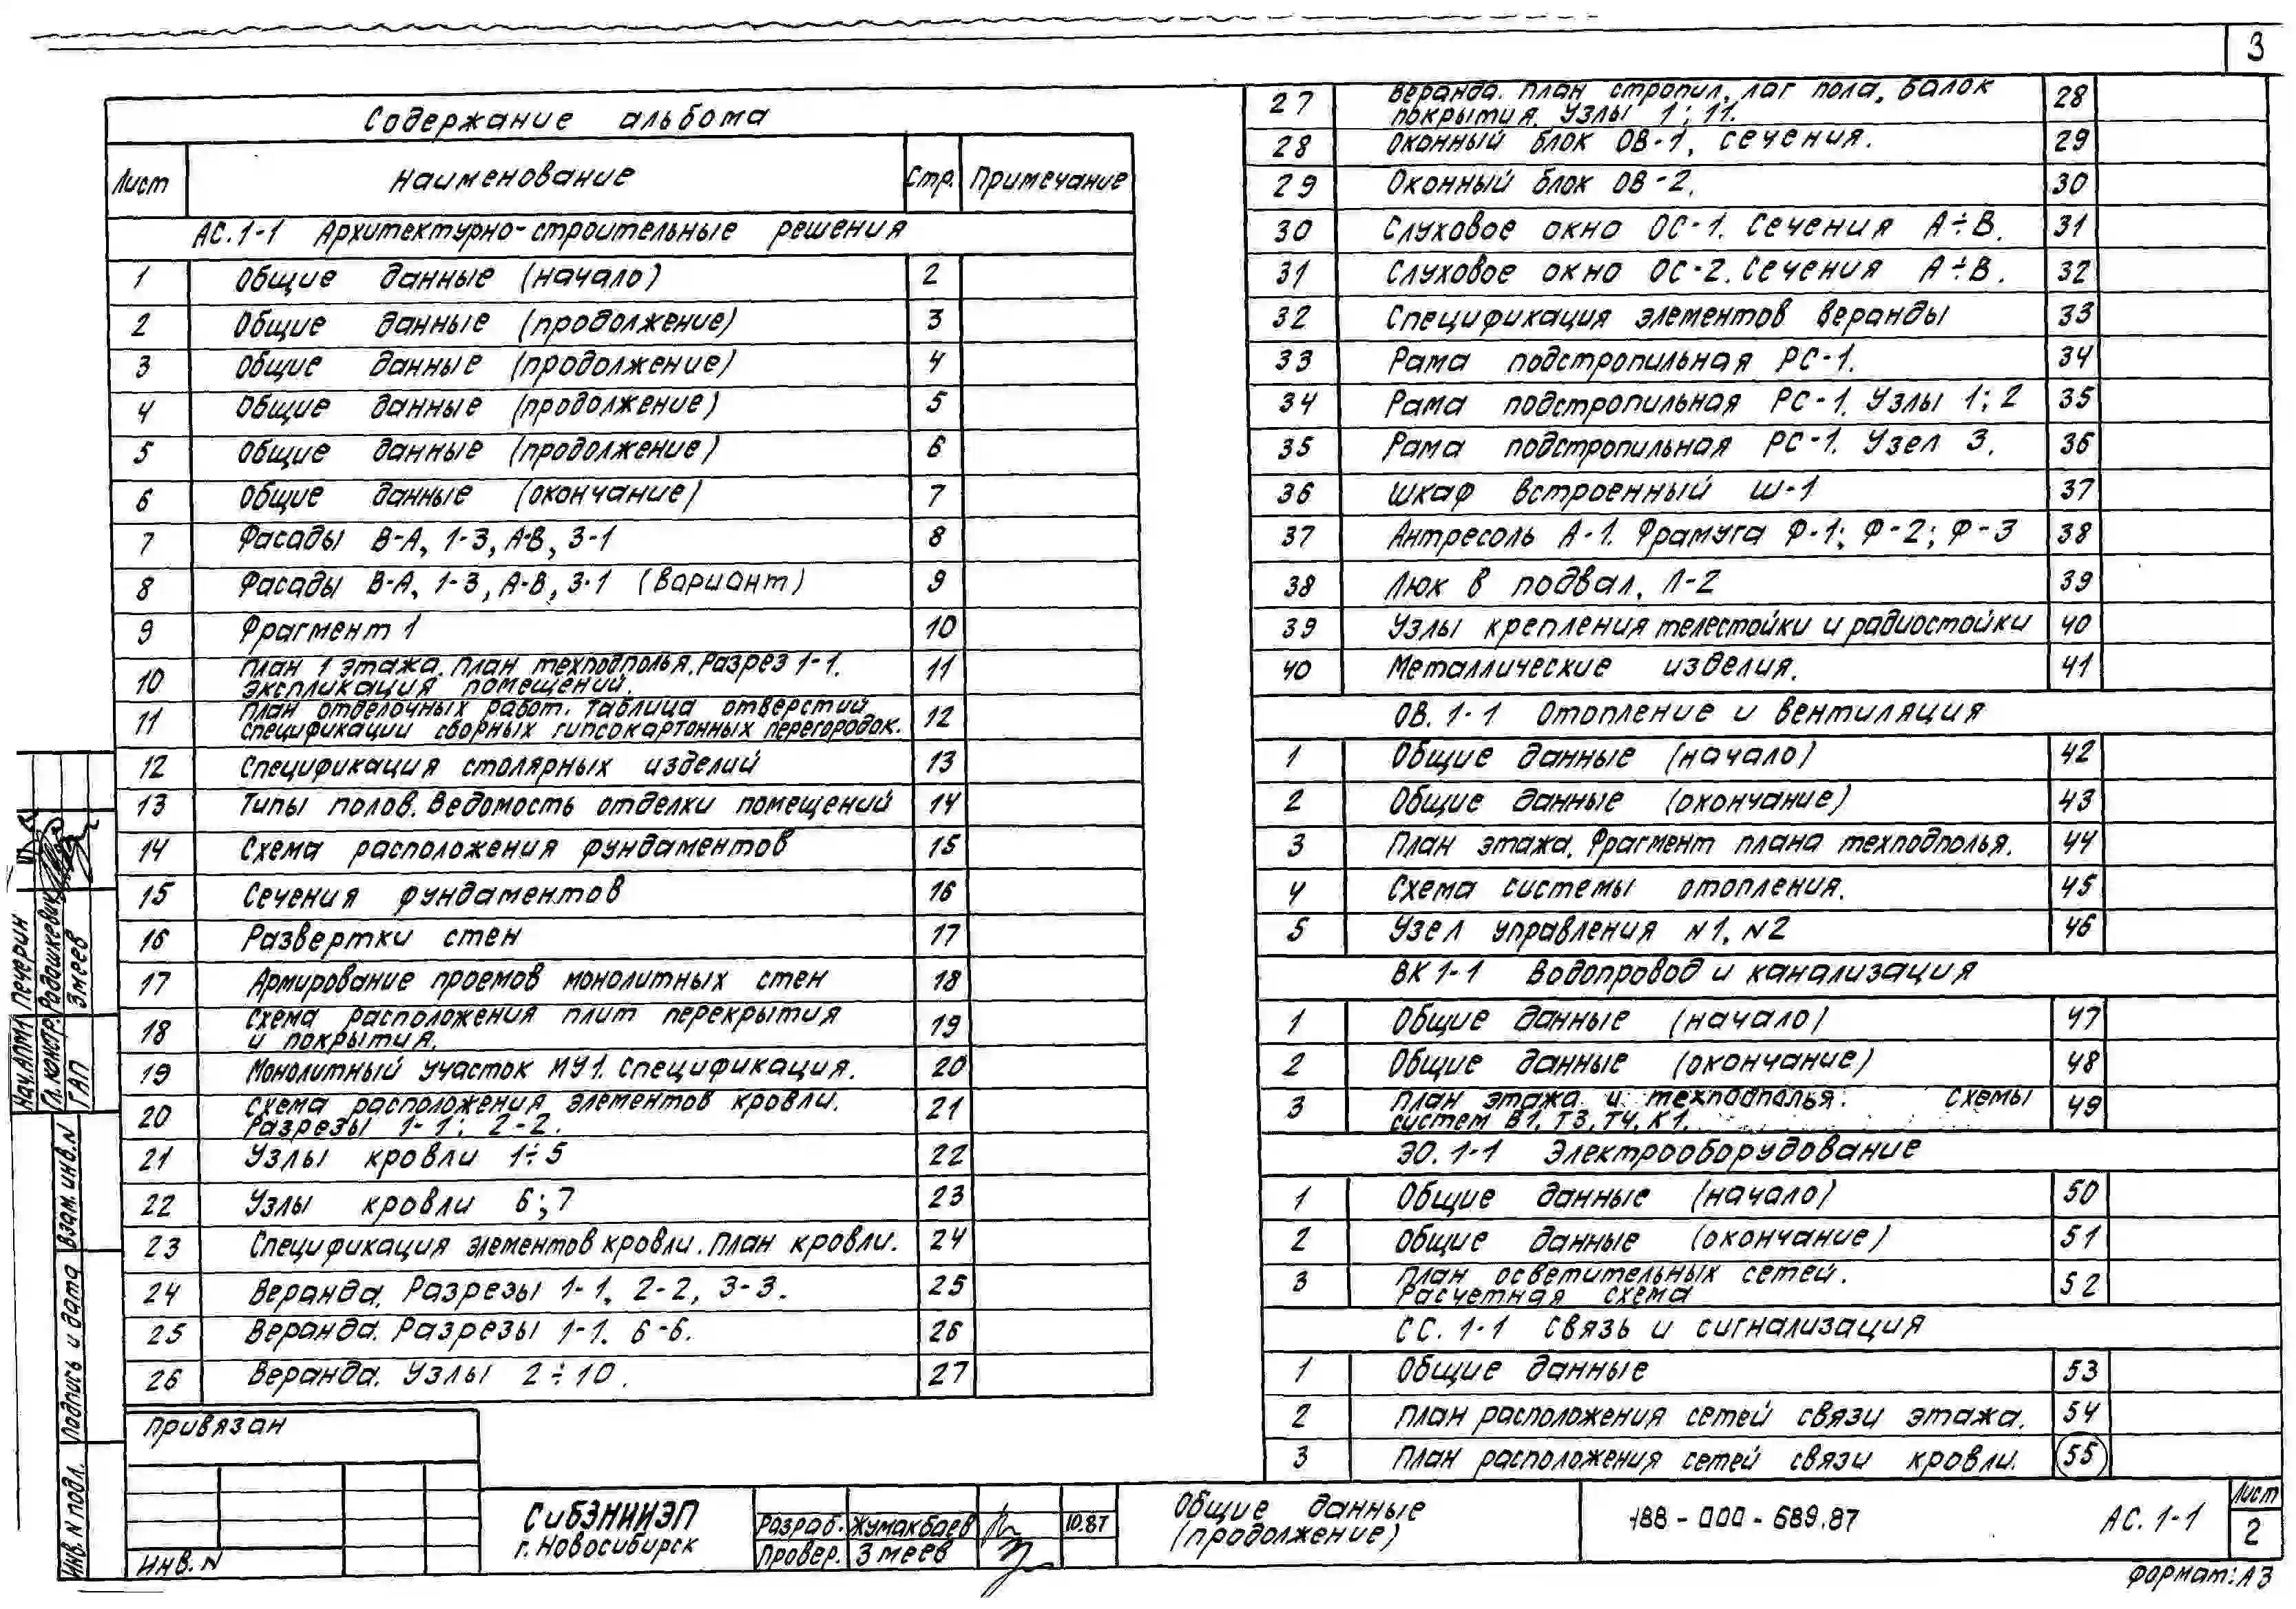 3
Содержание альбома
Лист Наименование Стр. Примечание
АС.1-1 Архитектурно-строительные решения
1 Общие данные (начало) 2
2 Общие данные (продолжение) 3
3 Общие данные (продолжение) 4
4 Общие данные (продолжение) 5
5 Общие данные (продолжение) 6
6 Общие данные (окончание) 7
7 Фасады В-А, 1-3, А-В, 3-1 8
8 Фасады В-А, 1-3, А-В, 3-1 (вариант) 9
9 Фрагмент 1 10
10 План 1 этажа. План техподполья. Разрез 1-1. 11
экспликация помещений.
11 План отделочных работ. Таблица отверстий 12
спецификации сборных гипсокартонных перегородок.
12 Спецификация столярных изделий 13
13 Типы полов. Ведомость отделки помещений 14
14 Схема расположения фундаментов 15
15 Сечения фундаментов 16
16 Развертки стен 17
17 Армирование проемов монолитных стен 18
18 Схема расположения плит перекрытия 19
и покрытия.
19 Монолитный участок МУ1. Спецификация. 20
20 Схема расположения элементов кровли. 21
Разрезы 1-1; 2-2.
21 Узлы кровли 1÷5 22
22 Узлы кровли 6; 7 23
23 Спецификация элементов кровли. План кровли. 24
24 Веранда. Разрезы 1-1, 2-2, 3-3. 25
25 Веранда. Разрезы 1-1. 6-6. 26
26 Веранда. Узлы 2÷10. 27
27 Веранда. План стропил, лаг пола, балок 28
покрытия. Узлы 1; 11.
28 Оконный блок ОВ-1, сечения. 29
29 Оконный блок ОВ-2. 30
30 Слуховое окно ОС-1. Сечения А÷В. 31
31 Слуховое окно ОС-2. Сечения А÷В. 32
32 Спецификация элементов веранды 33
33 Рама подстропильная РС-1. 34
34 Рама подстропильная РС-1. Узлы 1; 2 35
35 Рама подстропильная РС-1. Узел 3. 36
36 Шкаф встроенный Ш-1 37
37 Антресоль А-1. Фрамуга Ф-1; Ф-2; Ф-3 38
38 Люк в подвал, Л-2 39
39 Узлы крепления телестойки и радиостойки 40
40 Металлические изделия. 41
ОВ. 1-1 Отопление и вентиляция
1 Общие данные (начало) 42
2 Общие данные (окончание) 43
3 План этажа. Фрагмент плана техподполья. 44
4 Схема системы отопления. 45
5 Узел управления N1, N2 46
ВК 1-1 Водопровод и канализация
1 Общие данные (начало) 47
2 Общие данные (окончание) 48
3 План этажа и техподполья. Схемы 49
систем В1, Т3, Т4, К1.
ЭО. 1-1 Электрооборудование
1 Общие данные (начало) 50
2 Общие данные (окончание) 51
3 План осветительных сетей. 52
Расчетная схема
СС. 1-1 Связь и сигнализация
1 Общие данные 53
2 План расположения сетей связи этажа. 54
3 План расположения сетей связи кровли. 55
Нач. АПМ1 Печерин
Гл. констр. Радашкевич
ГАП Змеев
Взам. инв. N
Подпись и дата
Инв. N подл.
Привязан
Инв. N
СибЗНИИЭП
г. Новосибирск
Разраб. Жумакбаев 10.87
Провер. Змеев
Общие данные
(продолжение)
188-000-689.87 АС. 1-1
Лист
2
Формат: А3